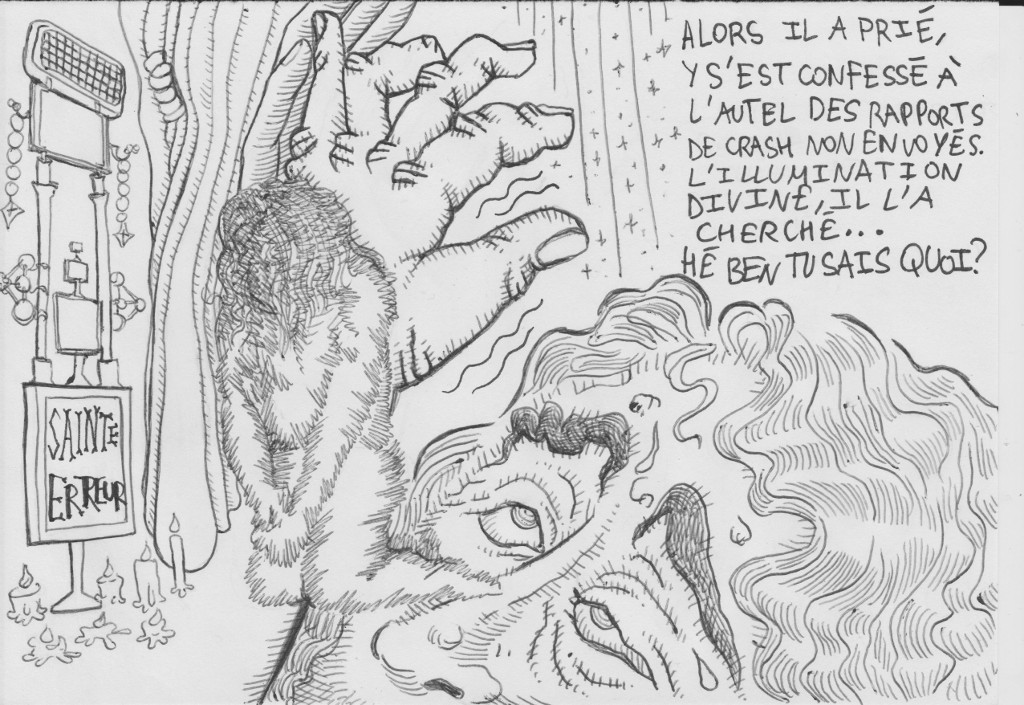 ALORS IL A PRIÉ,
Y S'EST CONFESSÉ À
L'AUTEL DES RAPPORTS
DE CRASH NON ENVOYÉS.
L'ILLUMINATION
DIVINE, IL L'A
CHERCHÉ...
HÉ BEN TU SAIS QUOI?
SAINTE
ERREUR